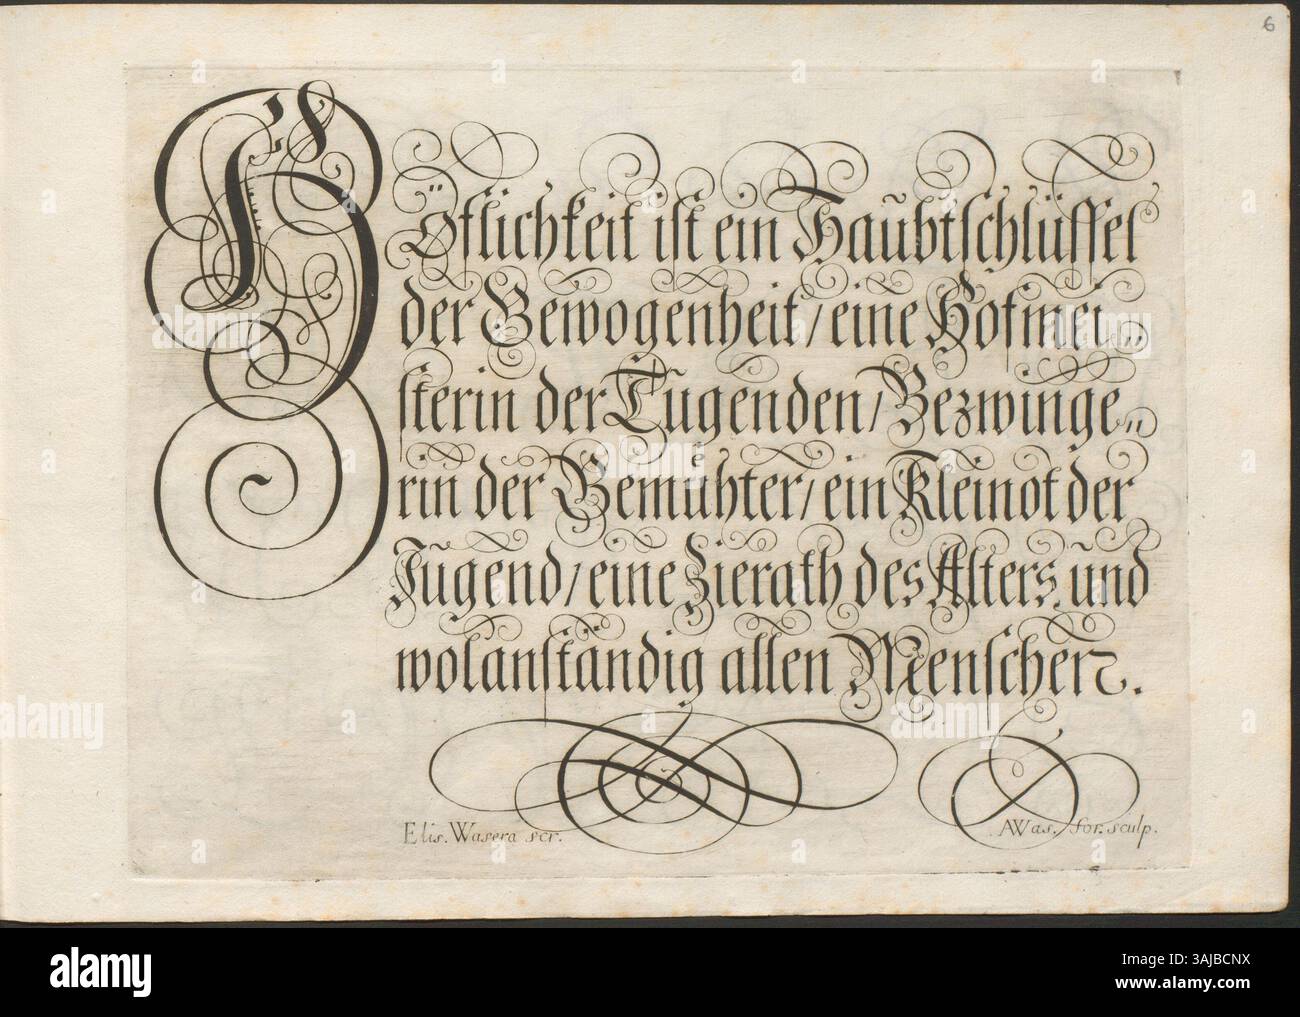 6
Höflichkeit ist ein Haŭbtschlüssel
der Gewogenheit / eine Hofmei„
sterin der Tŭgenden / Bezwinge„
rin der Gemühter / ein Kleinot der
Jŭgend / eine Zierath des Alters, ŭnd
wolanständig allen Menschen.
Elis. Wasera scr.
AWas. for. sculp.
alamy
Image ID: 3AJBCNX
www.alamy.com